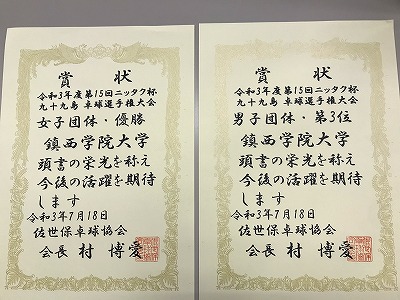 賞状
令和3年度第15回ニッタク杯
九十九島 卓球選手権大会
女子団体・優勝
鎮西学院大学
頭書の栄光を称え
今後の活躍を期待
します
令和3年7月18日
佐世保卓球協会
会長 村 博愛
賞状
令和3年度第15回ニッタク杯
九十九島 卓球選手権大会
男子団体・第3位
鎮西学院大学
頭書の栄光を称え
今後の活躍を期待
します
令和3年7月18日
佐世保卓球協会
会長 村 博愛